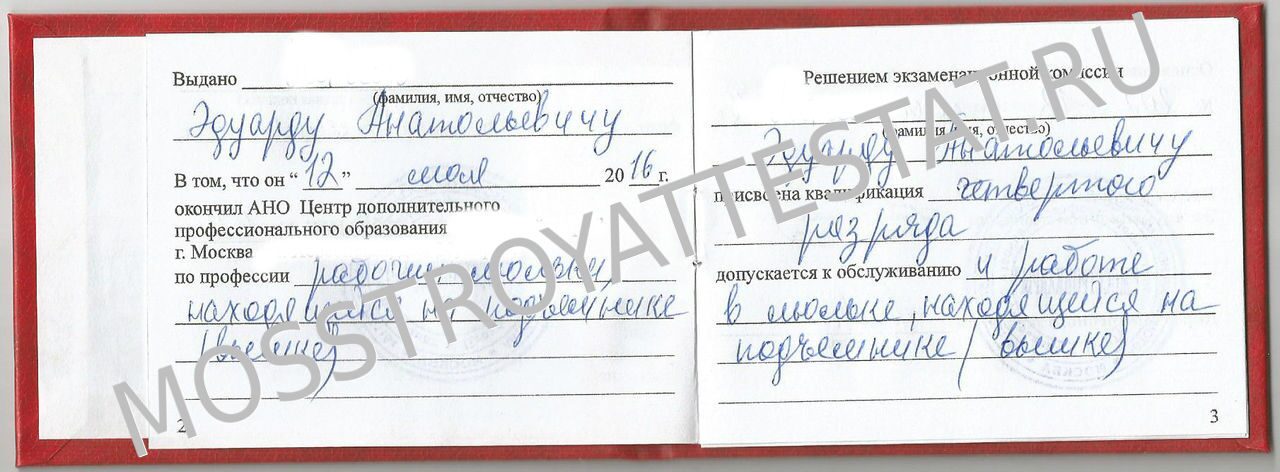 Выдано
(фамилия, имя, отчество)
Эдуарду Анатольевичу
В том, что он “12” мая 2016 г.
окончил АНО Центр дополнительного
профессионального образования
г. Москва
по профессии рабочий люльки,
находящийся на подъемнике
(вышке)
2
Решением экзаменационной комиссии
(фамилия, имя, отчество)
Эдуарду Анатольевичу
присвоена квалификация четвертого
разряда
допускается к обслуживанию и работе
в люльке, находящейся на
подъемнике (вышке)
3
MOSSTROYATTESTAT.RU